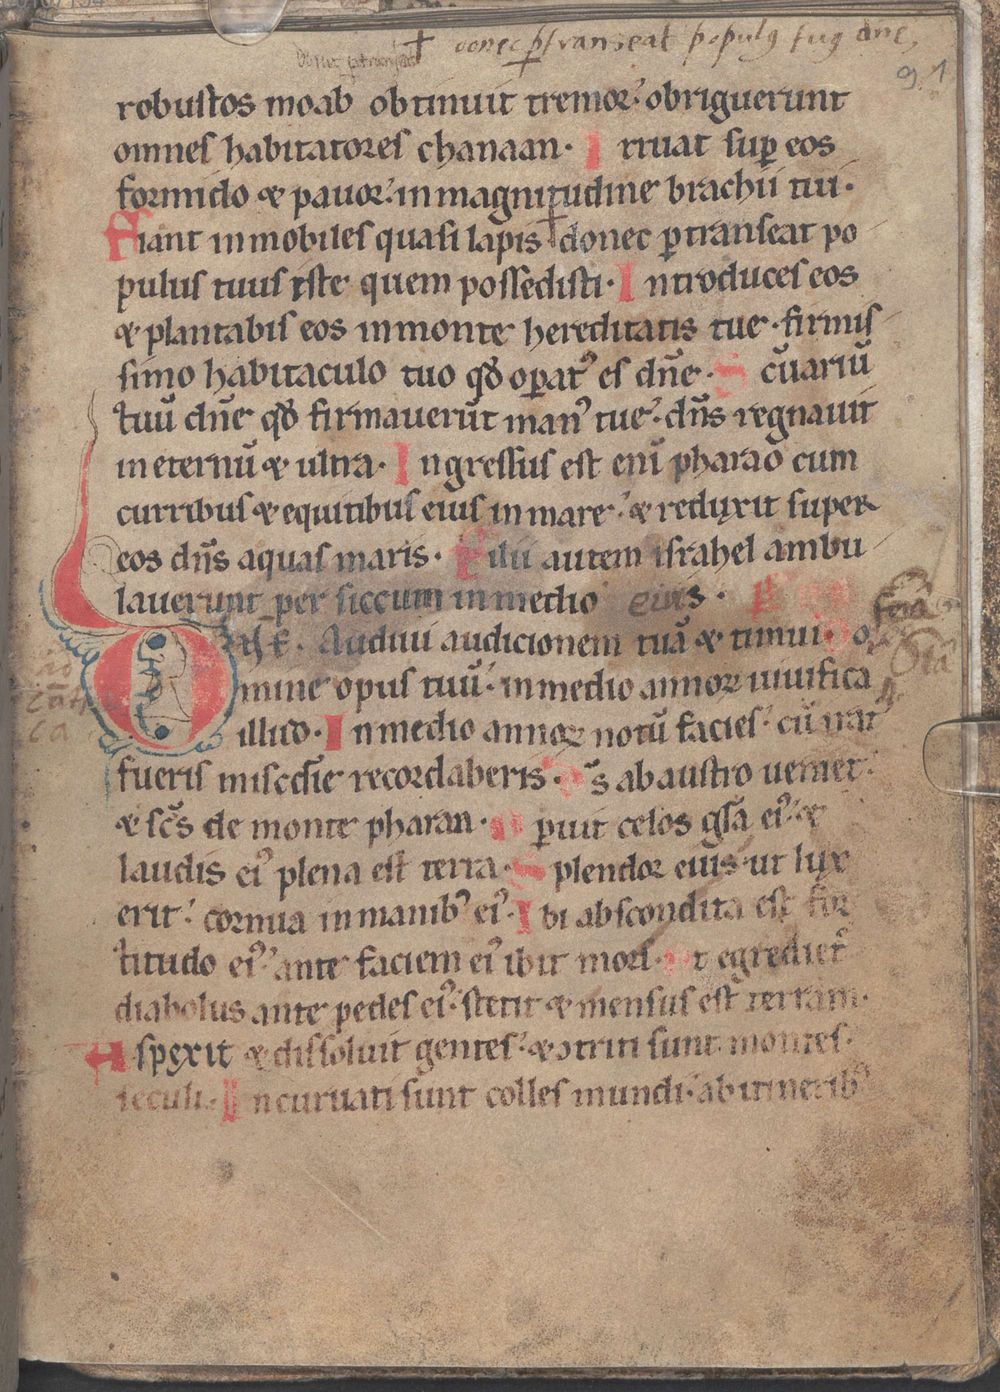 ✝ donec ꝑtranseat populꝰ tuꝰ dn̄e,
91
robustos moab obtinuit tremor: obriguerunt
omnes habitatores chanaan. Irruat suꝑ eos
formido & pauor: in magnitudine brachii tui.
Fiant inmobiles quasi lapis ✝ donec ꝑtranseat po
pulus tuus iste quem possedisti. Introduces eos
& plantabis eos in monte hereditatis tue. firmis
simo habitaculo tuo qd̄ opatꝰ es dn̄e. S cūariū
tuū dn̄e qd̄ firmauerūt manꝰ tue. dn̄s regnauit
in eternū & ultra. Ingressus est enī pharao cum
curribus & equitibus eius in mare: & reduxit super
eos dn̄s aquas maris. Filii autem israhel ambu
lauerunt per siccum in medio eius.
Audiui audicionem tuā & timui. Do
mine opus tuū. in medio annoꝝ uiuifica
illud. In medio annoꝝ notū facies. cū irat
fueris misc̄die recordaberis. Ds̄ ab austro ueniet.
& sc̄s de monte pharan. Aperuit celos gl̄a eiꝰ. &
laudis eiꝰ plena est terra. Splendor eius ut lux
erit: cornua in manibꝰ eiꝰ. Ibi abscondita est for
titudo eiꝰ. ante faciem eiꝰ ibit mors. Et egredietꝰ
diabolus ante pedes eiꝰ. stetit & mensus est terram.
Aspexit & dissoluit gentes: & ɔtriti sunt montes.
seculi. Incuruati sunt colles mundi. ab itineribꝰ